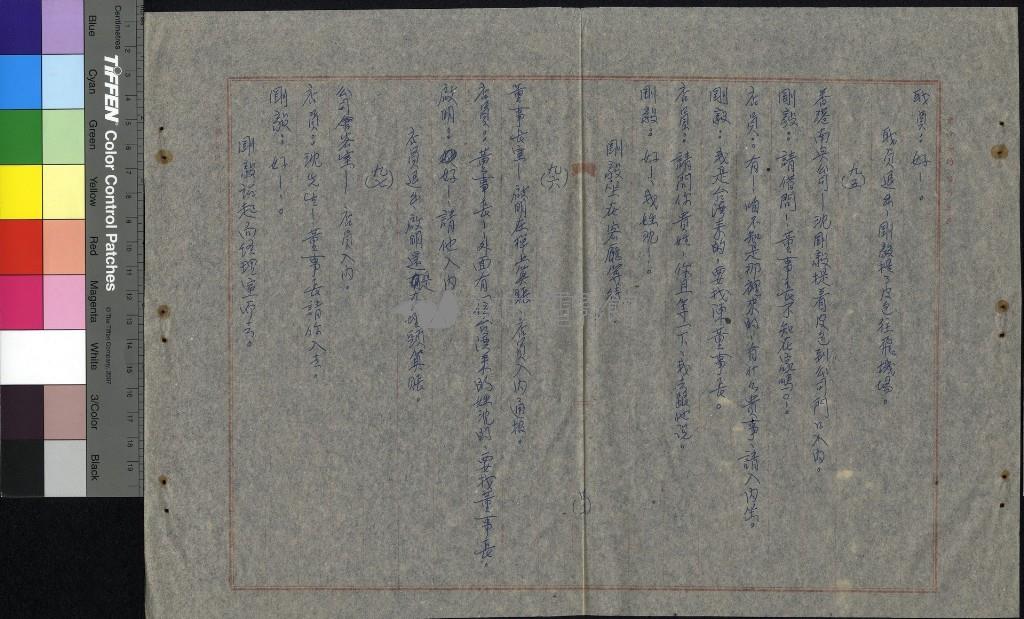 職員：好－。
職員退出，剛毅提了皮包往飛機場。
(九五)
善隣南央公司－沈剛毅提着皮包到公司門口入內。
剛毅：請借問－董事長不知在家嗎。
店員：有－咱不知是那裡來的，有什么貴事，請入內坐。
剛毅：我是台灣來的，要找陳董事長。
店員：請問你貴姓，你且等一下，我去跟他說。
剛毅：好－我姓沈－。
剛毅坐在客廳等待。
(九六)
董事長室－啟明在桌上算賬，店員入內通報。
店員：董事長－外面有一位台灣來的姓沈的，要找董事長。
啟明：好－請他入內
店員退出啟明還是在埋頭算賬。
(九七)
公司會客室－店員入內。
店員：沈先生－董事長請你入去。
剛毅：好－。
剛毅站起向經理室而去。
Centimetres
TIFFEN Color Control Patches
© The Tiffen Company, 2007
Blue
Cyan
Green
Yellow
Red
Magenta
White
3/Color
Black